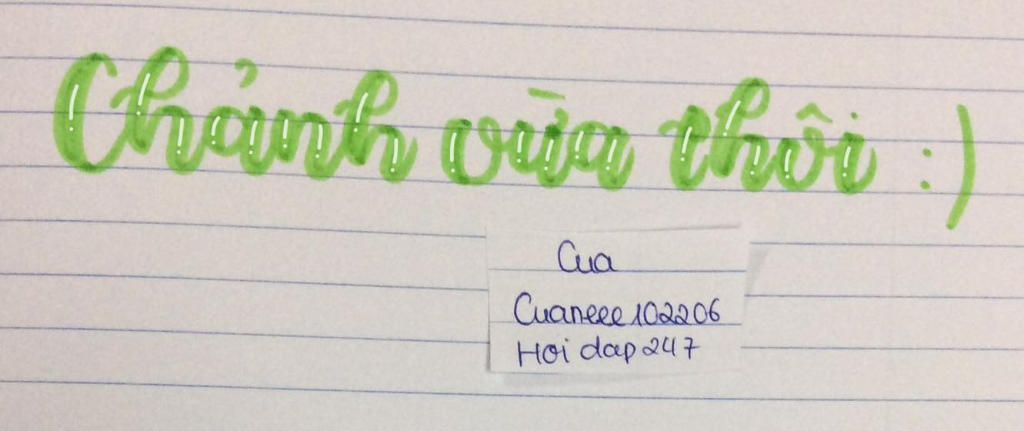 Chảnh vừa thôi :)
Cua
Cuaneee102206
Hoi dap 247